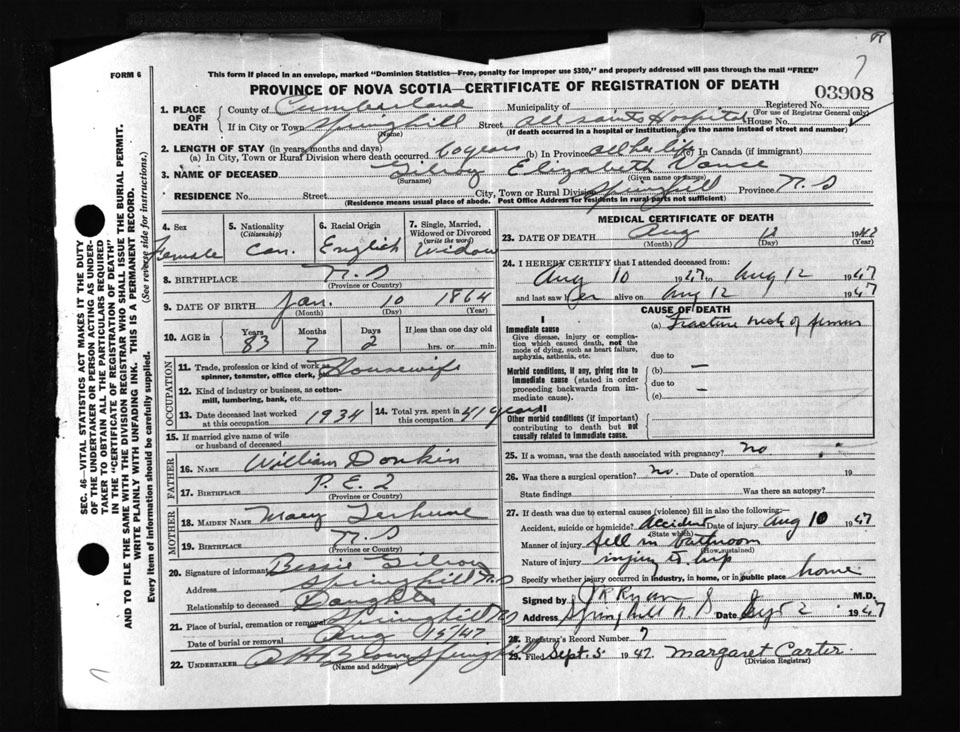 7
FORM 6
This form if placed in an envelope, marked "Dominion Statistics—Free, penalty for improper use $300," and properly addressed will pass through the mail "FREE"
PROVINCE OF NOVA SCOTIA—CERTIFICATE OF REGISTRATION OF DEATH
03908
SEC. 46—VITAL STATISTICS ACT MAKES IT THE DUTY
OF THE UNDERTAKER OR PERSON ACTING AS UNDER-
TAKER TO OBTAIN ALL THE PARTICULARS REQUIRED
IN THE "CERTIFICATE OF REGISTRATION OF DEATH"
AND TO FILE THE SAME WITH THE DIVISION REGISTRAR WHO SHALL ISSUE THE BURIAL PERMIT.
WRITE PLAINLY WITH UNFADING INK. THIS IS A PERMANENT RECORD.
Every item of information should be carefully supplied. (See reverse side for instructions.)
1. PLACE OF DEATH
County of Cumberland Municipality of Registered No.
(For use of Registrar General only)
If in City or Town Springhill Street All Saints Hospital House No.
(Name) (If death occurred in a hospital or institution, give the name instead of street and number)
2. LENGTH OF STAY (in years, months and days)
(a) In City, Town or Rural Division where death occurred 60 years (b) In Province all her life (c) In Canada (if immigrant)
3. NAME OF DECEASED Gilroy Elizabeth Vance
(Surname) (Given name or names)
RESIDENCE No. Street City, Town or Rural Division Springhill Province N.S
(Residence means usual place of abode. Post Office Address for residents in rural parts not sufficient)
4. Sex Female
5. Nationality (Citizenship) Can.
6. Racial Origin English
7. Single, Married, Widowed or Divorced (write the word) Widow
8. BIRTHPLACE N.S
(Province or Country)
9. DATE OF BIRTH Jan. 10 1864
(Month) (Day) (Year)
10. AGE in Years 83 Months 7 Days 2 If less than one day old hrs. or min.
OCCUPATION
11. Trade, profession or kind of work as spinner, teamster, office clerk, Housewife
12. Kind of industry or business, as cotton-mill, lumbering, bank, etc.
13. Date deceased last worked at this occupation 1934
14. Total yrs. spent in this occupation 41 years
15. If married give name of wife or husband of deceased
FATHER
16. NAME William Donkin
17. BIRTHPLACE P.E.I
(Province or Country)
MOTHER
18. MAIDEN NAME Mary Terhune
19. BIRTHPLACE N.S
(Province or Country)
20. Signature of informant Bessie Gilroy
Address Springhill N.S
Relationship to deceased Daughter
21. Place of burial, cremation or removal Springhill NS
Date of burial or removal Aug 15/47
22. UNDERTAKER A H Brown Springhill
(Name and address)
MEDICAL CERTIFICATE OF DEATH
23. DATE OF DEATH Aug 12 1947
(Month) (Day) (Year)
24. I HEREBY CERTIFY that I attended deceased from:
Aug 10 1947 to Aug 12 1947
and last saw her alive on Aug 12 1947
CAUSE OF DEATH
I
Immediate cause (a) Fracture neck of femur
Give disease, injury or complication which caused death, not the mode of dying, such as heart failure, asphyxia, asthenia, etc.
due to
Morbid conditions, if any, giving rise to immediate cause (stated in order proceeding backwards from immediate cause).
(b) —
due to
(c) —
II
Other morbid conditions (if important) contributing to death but not causally related to immediate cause.
25. If a woman, was the death associated with pregnancy? no
26. Was there a surgical operation? no. Date of operation 19
State findings Was there an autopsy?
27. If death was due to external causes (violence) fill in also the following:—
Accident, suicide or homicide? Accident Date of injury Aug 10 1947
(State which)
Manner of injury fell in bathroom
(How sustained)
Nature of injury injury to hip
Specify whether injury occurred in industry, in home, or in public place home
Signed by J R Ryan M.D.
Address Springhill N S Date Sept 2 1947
28. Registrar's Record Number 7
29. Filed Sept. 5 1947 Margaret Carter.
(Division Registrar)